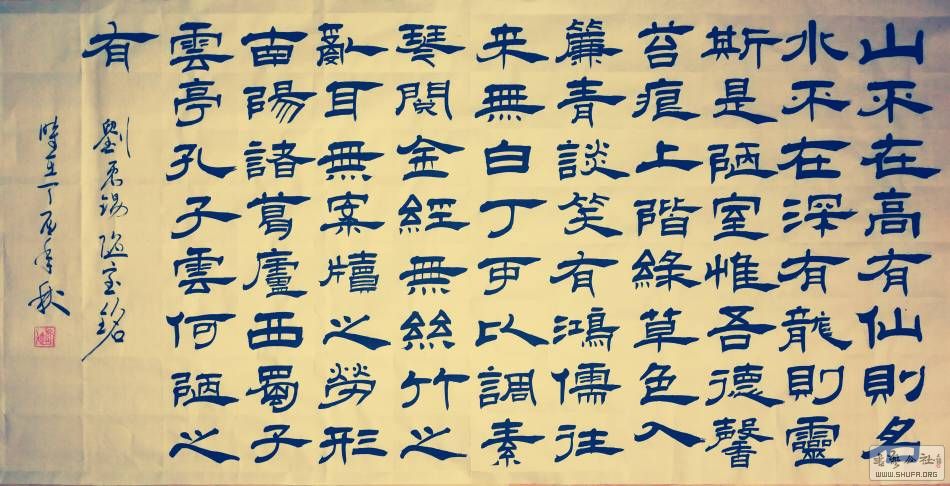 山不在高有仙則名
水不在深有龍則靈
斯是陋室惟吾德馨
苔痕上階綠草色入
簾青談笑有鴻儒往
来無白丁可以調素
琴閱金經無絲竹之
亂耳無案牘之勞形
南陽諸葛廬西蜀子
雲亭孔子雲何陋之
有
劉禹錫陋室銘
時在丁酉年秋
WWW.SHUFA.ORG